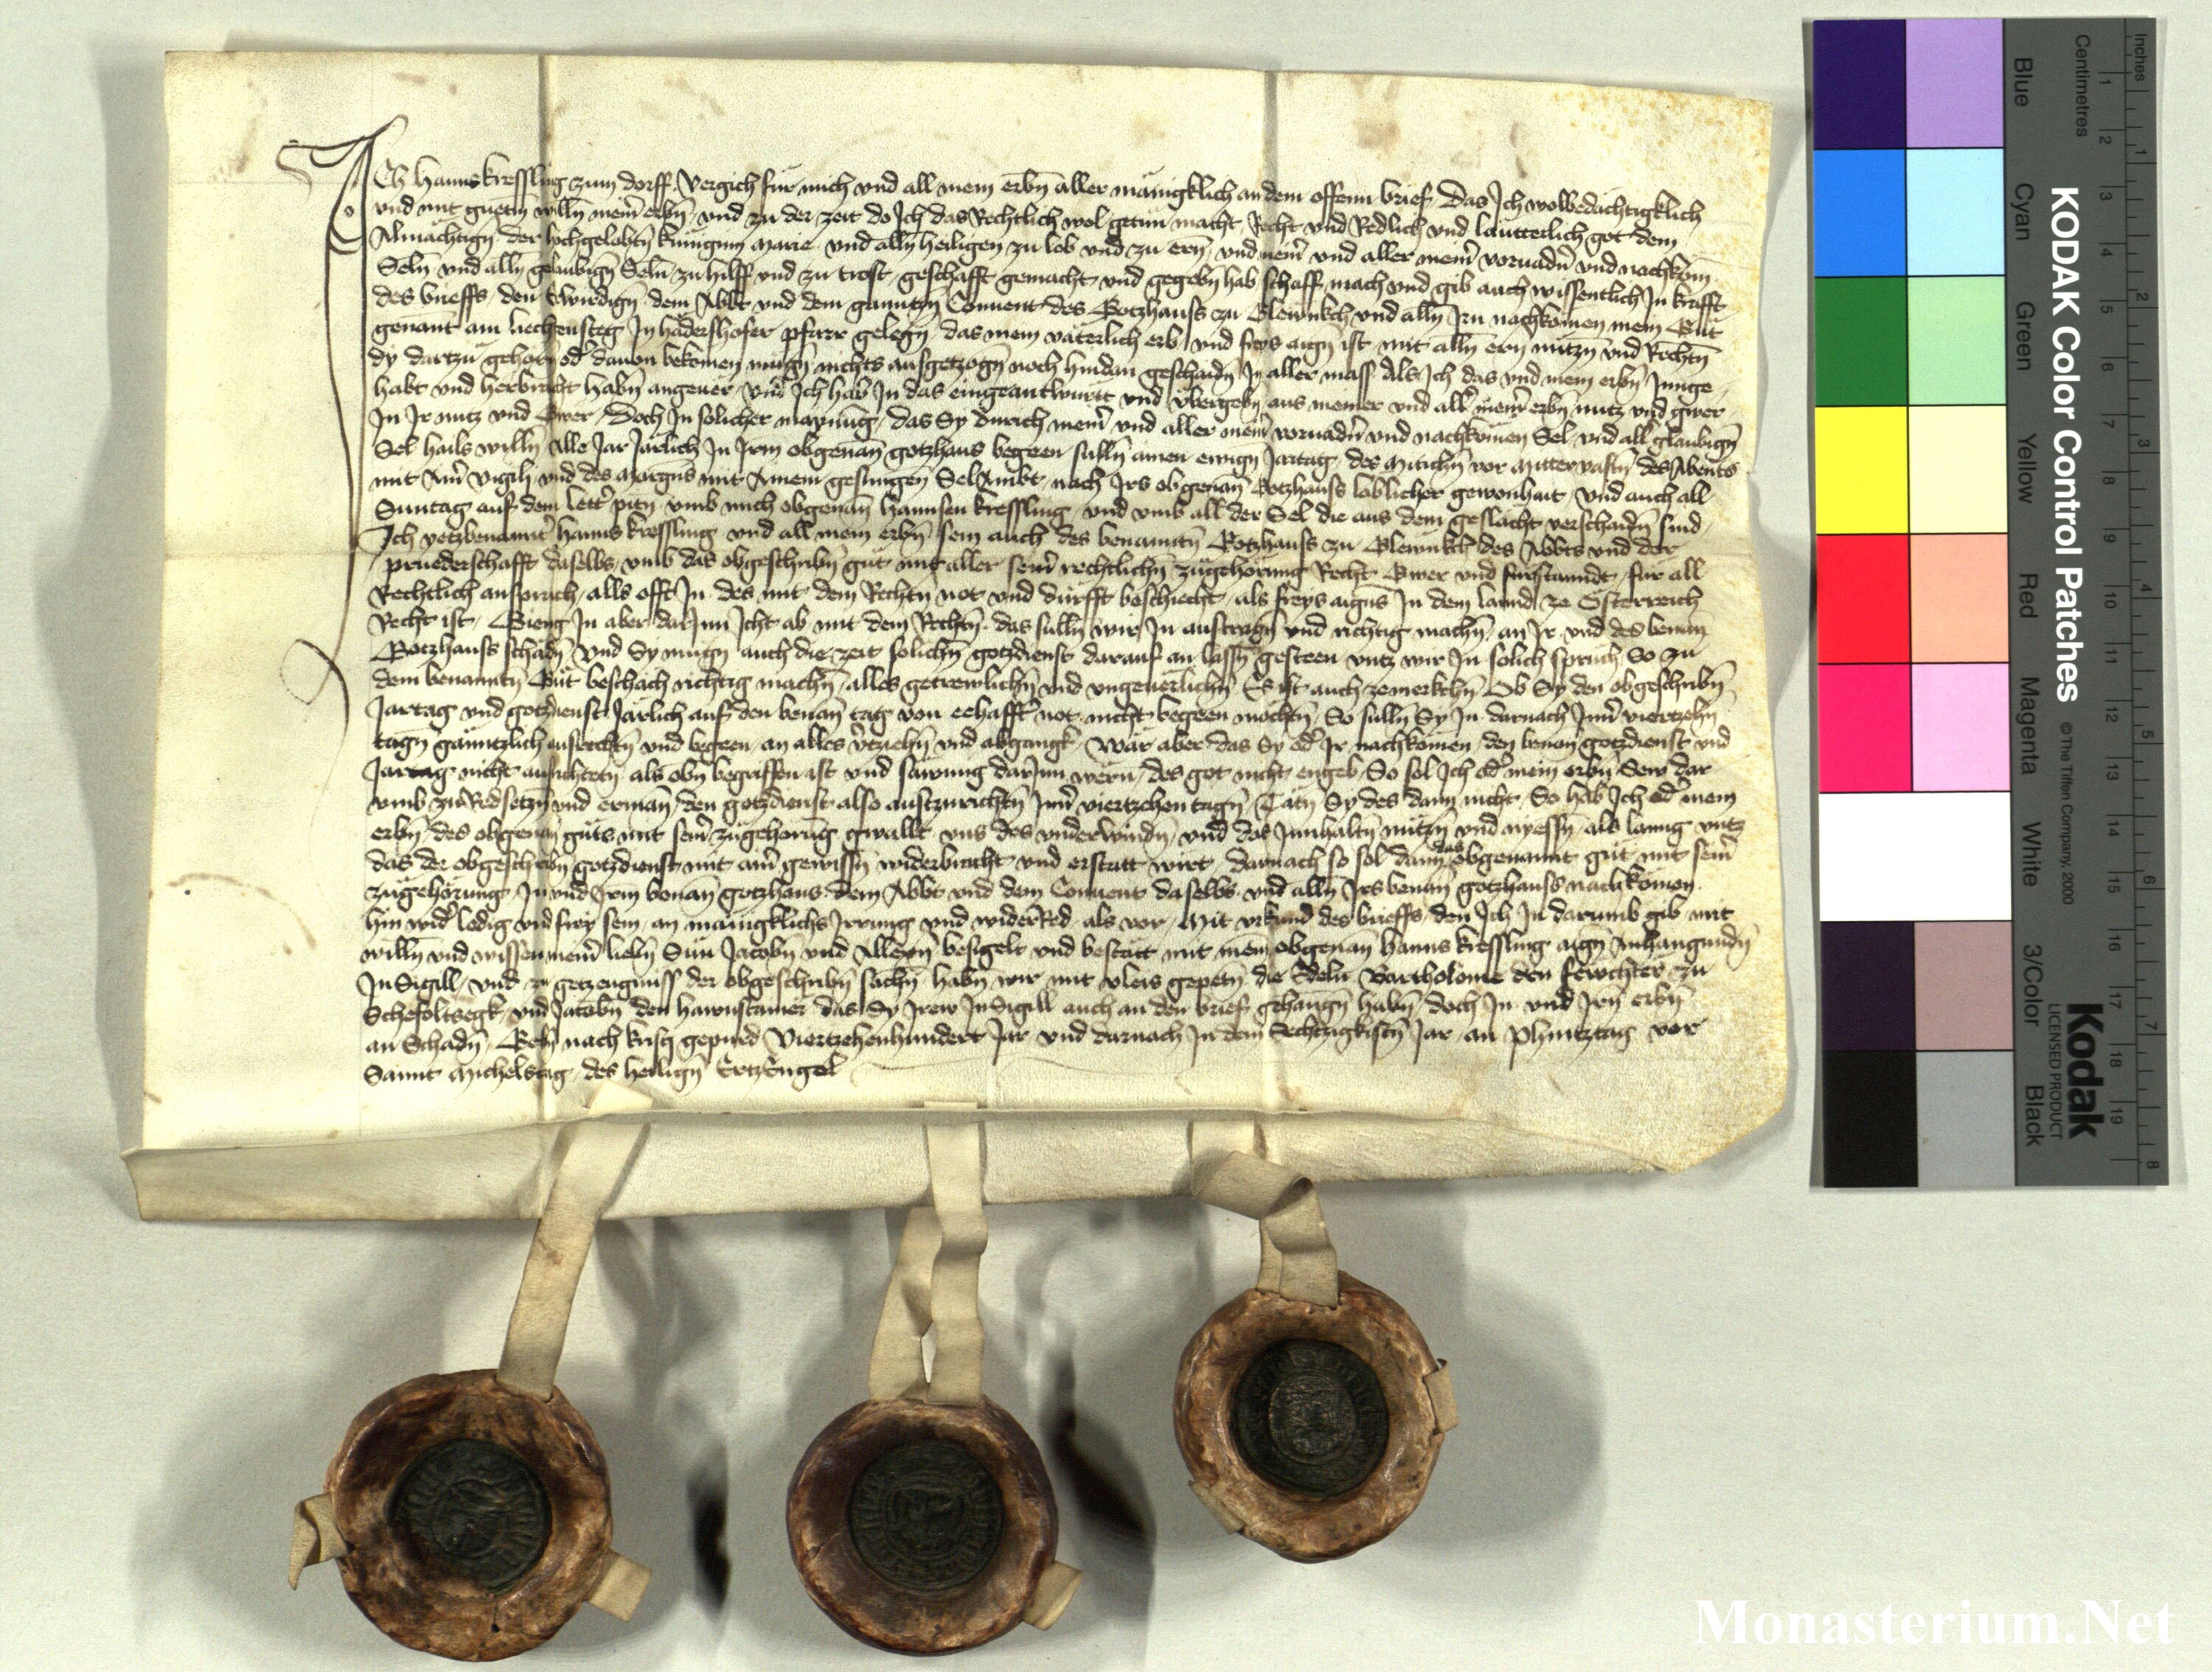 Ich Hanns kressling zum dorff vergich für mich vnd all mein erbn̄ aller mänigklich an dem offenn brief Das Ich wolbedächtigklich
vnd mit guetm willn̄ meinr̄ erbn̄ vnd zu der zeit do Ich das Rechtlich wol getun macht Recht vnd Redlich vnd lautterlich got dem
Almächtign̄ der hochgelobtn̄ küniginn Marie vnd alln̄ heiligen zu lob vnd zu ern̄ vnd meinr̄ vnd aller meinr̄ voruadn̄ vnd nachköm̄
Seln̄ vnd alln̄ gelaubign̄ Seln̄ zu hilff vnd zu trost geschafft gemacht vnd gegebn̄ hab schaff mach vnd gib auch wissentlich In krafft
des brieffs den Erwirdign̄ dem Abbt vnd dem gantzn̄ Conuent des Gotzhauss zu Glewnkch vnd alln̄ Irn nachkömen mein Gut
genant am liechtensteg In hädershofer pfarr gelegn̄ das mein väterlich erb vnd freys aign̄ ist mit alln̄ ern nutzn̄ vnd Rechtn̄
dy dartzu gehorn̄ odr̄ dauon bekömen mügn̄ nichts ausgetzogn̄ noch hindan geschaidn̄ In aller mass Als Ich das vnd mein erbn̄ Innge
habt vnd herbracht habn̄ angeuer vnd Ich hab In das eingeantwurtt vnd vbergebn̄ aus meiner vnd allr̄ meinr̄ erbn̄ nutz vnd gwer
In Ir nutz vnd Gwer Doch In solicher maynung das Sy durich meinr̄ vnd aller meinr̄ voruadn̄ vnd nachkömen Sel vnd allr̄ glaubign̄
Sel hails willn̄ Alle Jar Järlich In Irm obgenan̄ gotzhaus begeen sulln̄ ainen ewign̄ Jartag des Mitichn̄ vor Mitteruastn̄ des Abents
mit Ainr̄ vigili vnd des Margns mit Ainem gesungen SelAmbt nach Irs obgenan̄ Gotzhauss loblicher gewonhait vnd auch all
Suntag auf dem lettr̄ pitn̄ vmb mich obgenan̄ Hannsen kressling vnd vmb all der Sel die aus dem geslächt verschaidn̄ sind
Ich yetzbenantr̄ Hanns kressling vnd all mein erbn̄ sein auch des benantn̄ Gotzhauss zu Glewnkch des Abbts vnd der
prüederschafft daselbs vmb das obgeschribn̄ gut mit aller seinr̄ rechtlichn̄ zugehörung Recht Gwer vnd fürstanndt für all
Rechtlich ansprüch alls offt In des mit dem Rechtn̄ not vnd dürfft beschiecht als freys aigns In dem lannd ze Österreich
Recht ist Gieng In aber darInn Icht ab mit dem Rechtn̄ das sulln̄ wir In austragn̄ vnd richtig machn̄ an Ir vnd des benan̄
Gotzhauss schadn̄ vnd Sy mügn̄ auch die zeit solichn̄ gotzdienst darauf an lassn̄ gesteen vntz wir In solich sprüch So zu
dem benantn̄ Gut beschäch richtig machn̄ alles getrewlichn̄ vnd vngeuerlichn̄ Es ist auch zemerkchn̄ Ob Sy den obgeschribn̄
Jartag vnd gotzdienst Järlich auf den benan̄ tag von eehaffter not nicht begeen möchtn̄ So sulln̄ Sy In darnach Innr̄ viertzehn̄
tagn̄ gänntzlich ausrichtn̄ vnd begeen an alles vertziehn̄ vnd abgangk Wär aber das Sy odr̄ Ir nachkömen den benan̄ gotzdienst vnd
Jartag nicht ausrichtetn̄ als obn̄ begriffen ist vnd säwmig darInn wërn des got nicht engeb So sol Ich odr̄ mein erbn̄ Sew dar
vmb zu Red setzn̄ vnd ermān̄ den gotzdienst also austzurichtn̄ Innr̄ viertzehen tagn̄ Tätn̄ Sy des dann nicht So hab Ich odr̄ mein
erbn̄ des obgenan̄ guts mit seinr̄ zugehörūg gwallt vns des vnderwindn̄ vnd das Innhaltn̄ nutzn̄ vnd nyessn̄ als lanng vntz
das der obgeschribn̄ gotzdienst mit ainr̄ gewissn̄ widerbracht vnd erstatt wirt darnach so sol dann das obgenannt gut mit seinr̄
zugehörung In vnd Irm benan̄ gotzhaus dem Abbt vnd dem Conuent daselbs vnd alln̄ Irs benan̄ gotzhauss nachkömen
hin widr̄ ledig vnd frey sein an mänigklichs Irrung vnd widerRed als vor Mit vrkund des brieffs den Ich In darumb gib mit
willn̄ vnd wissen meinr̄ liebn̄ Sün Jacobn̄ vnd Allexn̄ besigelt vnd bestätt mit mein obgenan̄ Hanns kressling aign̄ anhangundn̄
InSigill vnd zu getzeugnuss der obgeschribn̄ sachn̄ habn̄ wir mit vleis gepetn̄ die Edeln Bartholome den fewchter zu
vnd Jacobn̄ den das Sy Irew InSigill auch an den brief gehangn̄ habn̄ doch In vnd Irn̄ erbn̄
an Schadn̄ Gebn̄ nach kristi gepurd Viertzehenhundert Jar vnd darnach In dem Sechtzigkistn̄ Jar an Phintztag vor
Sannt Michelstag des heilign̄ ErtzEngel
KODAK Color Control Patches © The Tiffen Company, 2000
Kodak
LICENSED PRODUCT
Inches 1 2 3 4 5 6 7 8
Centimetres 1 2 3 4 5 6 7 8 9 10 11 12 13 14 15 16 17 18 19
Blue Cyan Green Yellow Red Magenta White 3/Color Black
Monasterium.Net